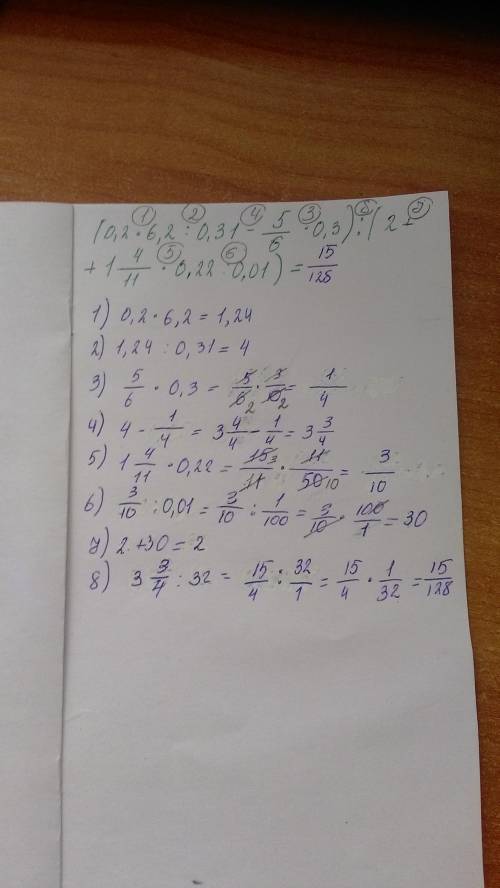 (0,2 · 6,2 : 0,31 - 5/6 · 0,3) : (2 +
+ 1 4/11 · 0,22 : 0,01) = 15/128
1) 0,2 · 6,2 = 1,24
2) 1,24 : 0,31 = 4
3) 5/6 · 0,3 = 5/6 2 · 3/0 2 = 1/4
4) 4 - 1/4 = 3 4/4 - 1/4 = 3 3/4
5) 1 4/11 · 0,22 = 15 3/11 · 11/50 10 = 3/10
6) 3/10 : 0,01 = 3/10 : 1/100 = 3/10 · 100/1 = 30
7) 2 + 30 = 2
8) 3 3/4 : 32 = 15/4 : 32/1 = 15/4 · 1/32 = 15/128